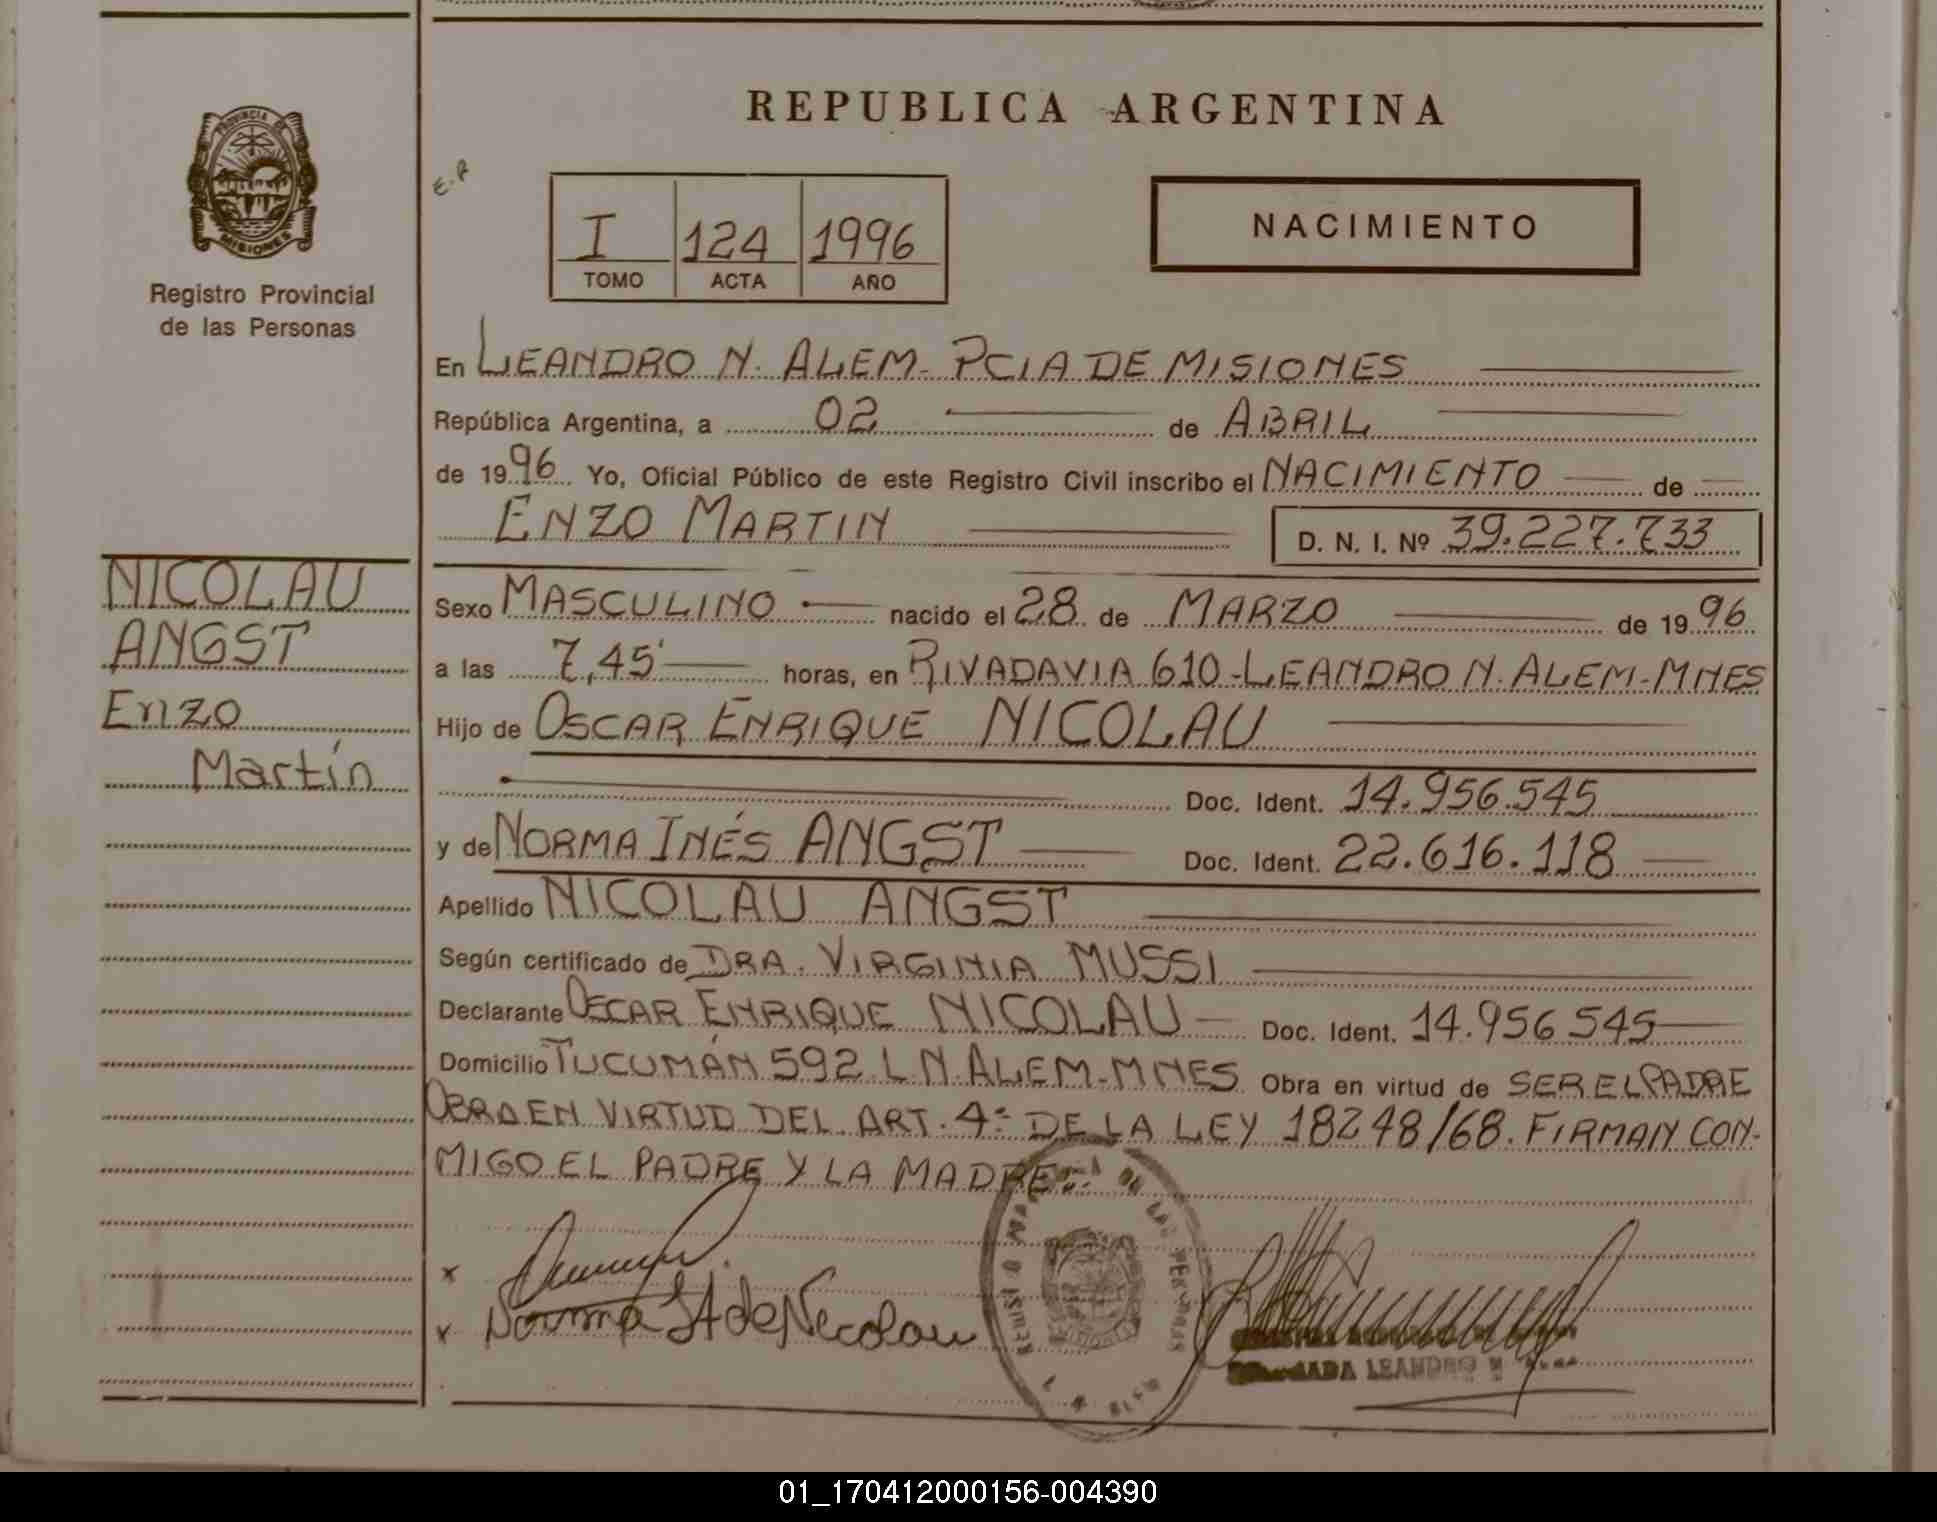 REPUBLICA ARGENTINA
PROVINCIA DE
MISIONES
Registro Provincial
de las Personas
E.R
I 124 1996
TOMO ACTA AÑO
NACIMIENTO
En LEANDRO N. ALEM- PCIA DE MISIONES
República Argentina, a 02 de ABRIL
de 1996 Yo, Oficial Público de este Registro Civil inscribo el NACIMIENTO de
ENZO MARTIN D. N. I. Nº 39.227.733
NICOLAU
ANGST
Enzo
Martín
Sexo MASCULINO nacido el 28 de MARZO de 1996
a las 7,45' horas, en RIVADAVIA 610-LEANDRO N. ALEM-MNES
Hijo de OSCAR ENRIQUE NICOLAU
Doc. Ident. 14.956.545
y de NORMA INÉS ANGST Doc. Ident. 22.616.118
Apellido NICOLAU ANGST
Según certificado de DRA. VIRGINIA MUSSI
Declarante OSCAR ENRIQUE NICOLAU Doc. Ident. 14.956 545
Domicilio TUCUMÁN 592 L N. ALEM-MNES Obra en virtud de SER EL PADRE
OBRA EN VIRTUD DEL ART. 4º DE LA LEY 18248/68. FIRMAN CON-
MIGO EL PADRE Y LA MADRE
x
x Norma de Nicolau
DE LAS PERSONAS
LEANDRO N
01_170412000156-004390